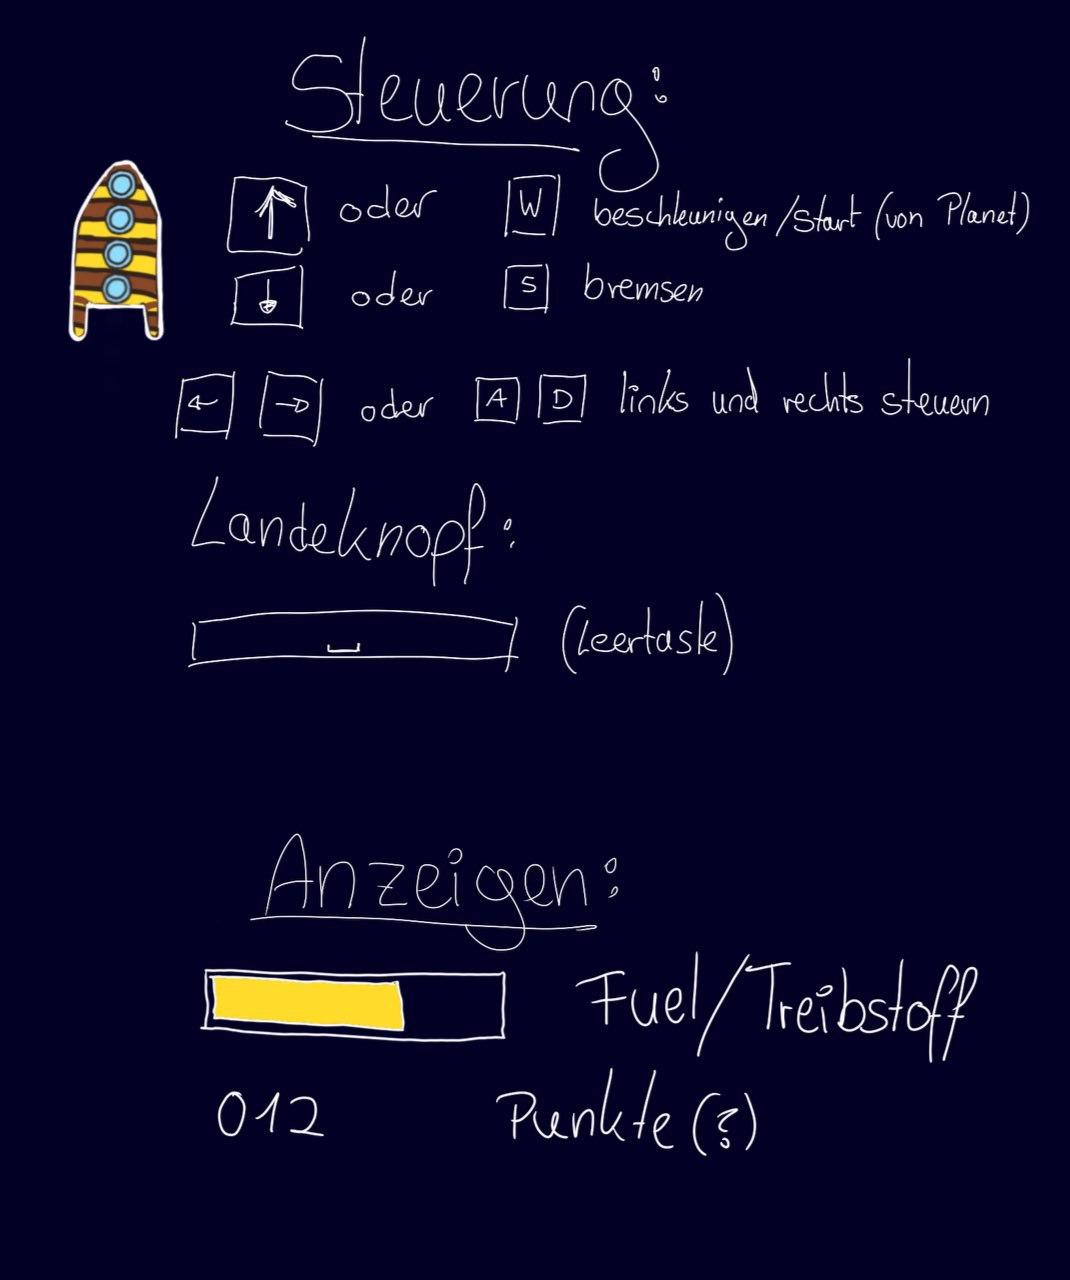 Steuerung:
↑ oder W beschleunigen/Start (von Planet)
↓ oder S bremsen
← → oder A D links und rechts steuern
Landeknopf:
(Leertaste)
Anzeigen:
Fuel/Treibstoff
012 Punkte (?)